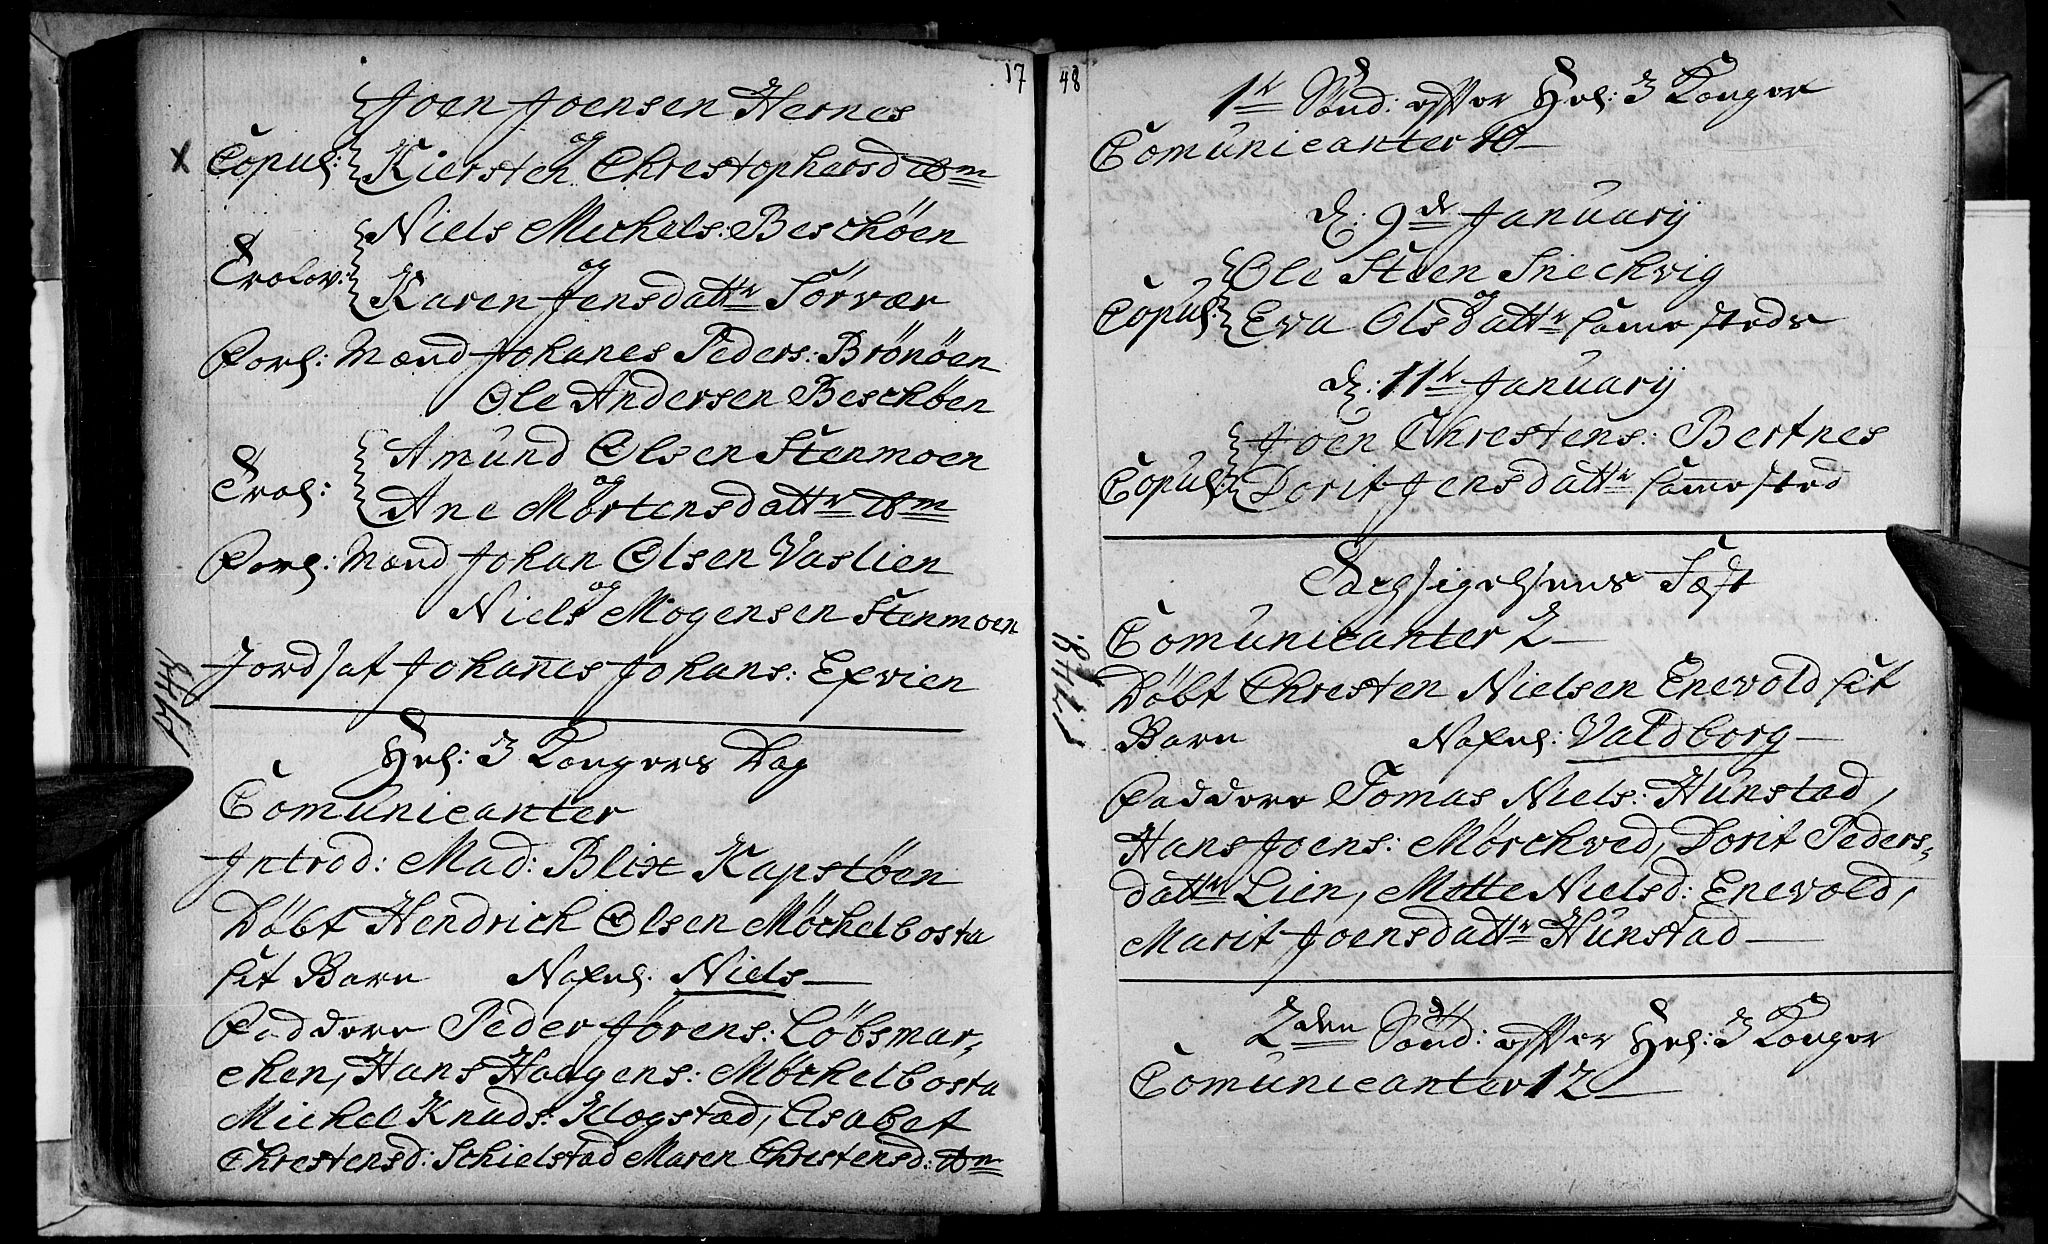 17
Joen Joensen Hernes
og
x Copul: Kiersten Chrestophersd ibm
Niels Michels: Beschøen
Trolov: og
Karen Jensdattr Sørvær
Forl: Mænd Johanes Peders: Brønøen
Ole Andersen Beschøen
Amund Olsen Stenmoen
Trol: og
Ane Mortensdattr ibm
Forl: Mænd Johan Olsen Vaslien
og
Niels Mogensen Stenmoen
Jordsat Johanes Johans: Efvien
1748
Hel: 3 Kongers Dag
Comunicanter
Introd: Mad: Blix Kapstøen
Døbt Hendrich Olsen Møchelbosta
sit Barn Nafnl. Niels
Faddere Peder Jørens: Løbsmar-
chen, Hans Haagens: Møchelbosta
Michel Knuds: Klogstad, Elsabet
Chrestensd: Schielstad Maren Chrestensd: ibm
48
1te Sønd: effter Hel: 3 Konger
Comunicanter 10
d: 9de January
Ole Steen Snechvig
og
Copul: Eva Olsdattr samesteds
d: 11te January
Joen Chrestens: Bertnes
Copul: Dorit Jensdattr sammested
1748.
Kyndelsmisses Fæst
Comunicanter 2
Døbt Chresten Nielsen Enevold sit
Barn Nafnl: Valdborg
Faddere Tomas Niels: Hunstad,
Hans Joens: Mørchved, Dorit Peders-
dattr Lien, Mette Nielsd: Enevold,
Marit Joensdattr Hunstad
2den Sønd: effter Hel: 3 Konger
Comunicanter 12